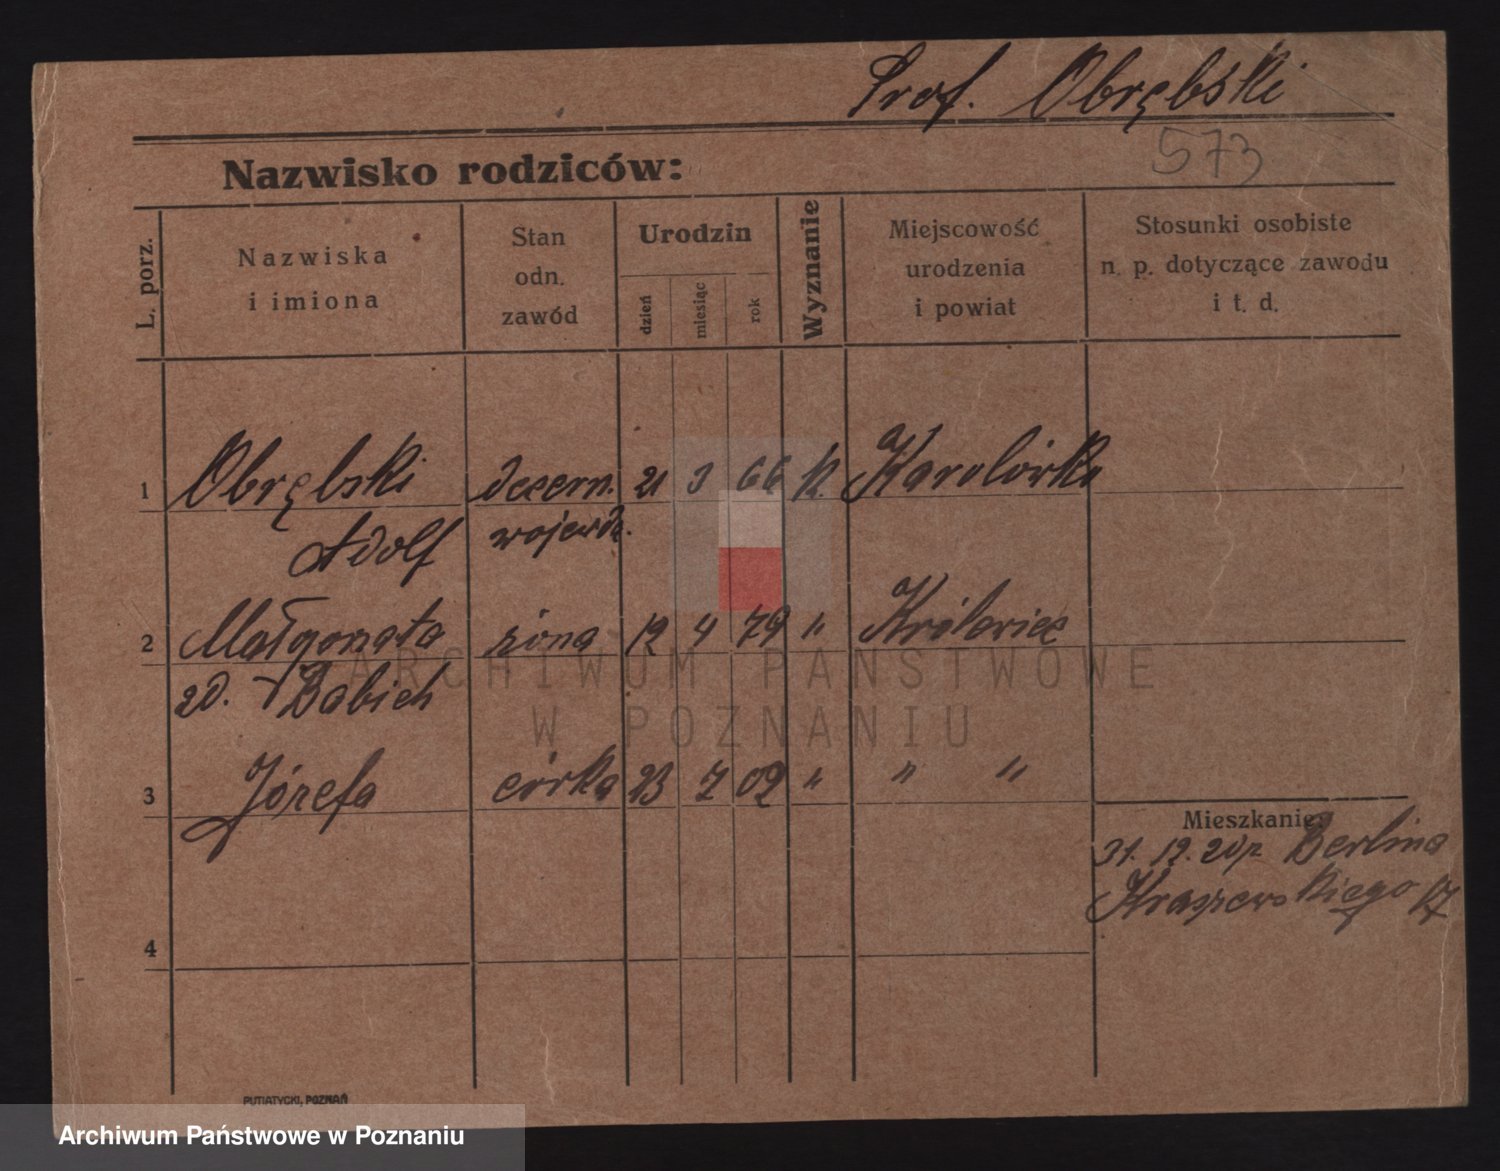 Prof. Obrębski
573
Nazwisko rodziców:
L. porz.
Nazwiska
i imiona
Stan
odn.
zawód
Urodzin
dzień
miesiąc
rok
Wyznanie
Miejscowość
urodzenia
i powiat
Stosunki osobiste
n. p. dotyczące zawodu
i t. d.
1 Obrębski decern. 21 3 66 k. Karolówka
Adolf wojewdz.
2 Małgorzata żona 12 4 79 " Królewiec
zd. Babich
3 Józefa córka 23 7 02 " " "
Mieszkanie:
31. 12. 20 z Berlina
Kraszewskiego 17
4
PUTIATYCKI, POZNAŃ
ARCHIWUM PAŃSTWOWE
W POZNANIU
Archiwum Państwowe w Poznaniu